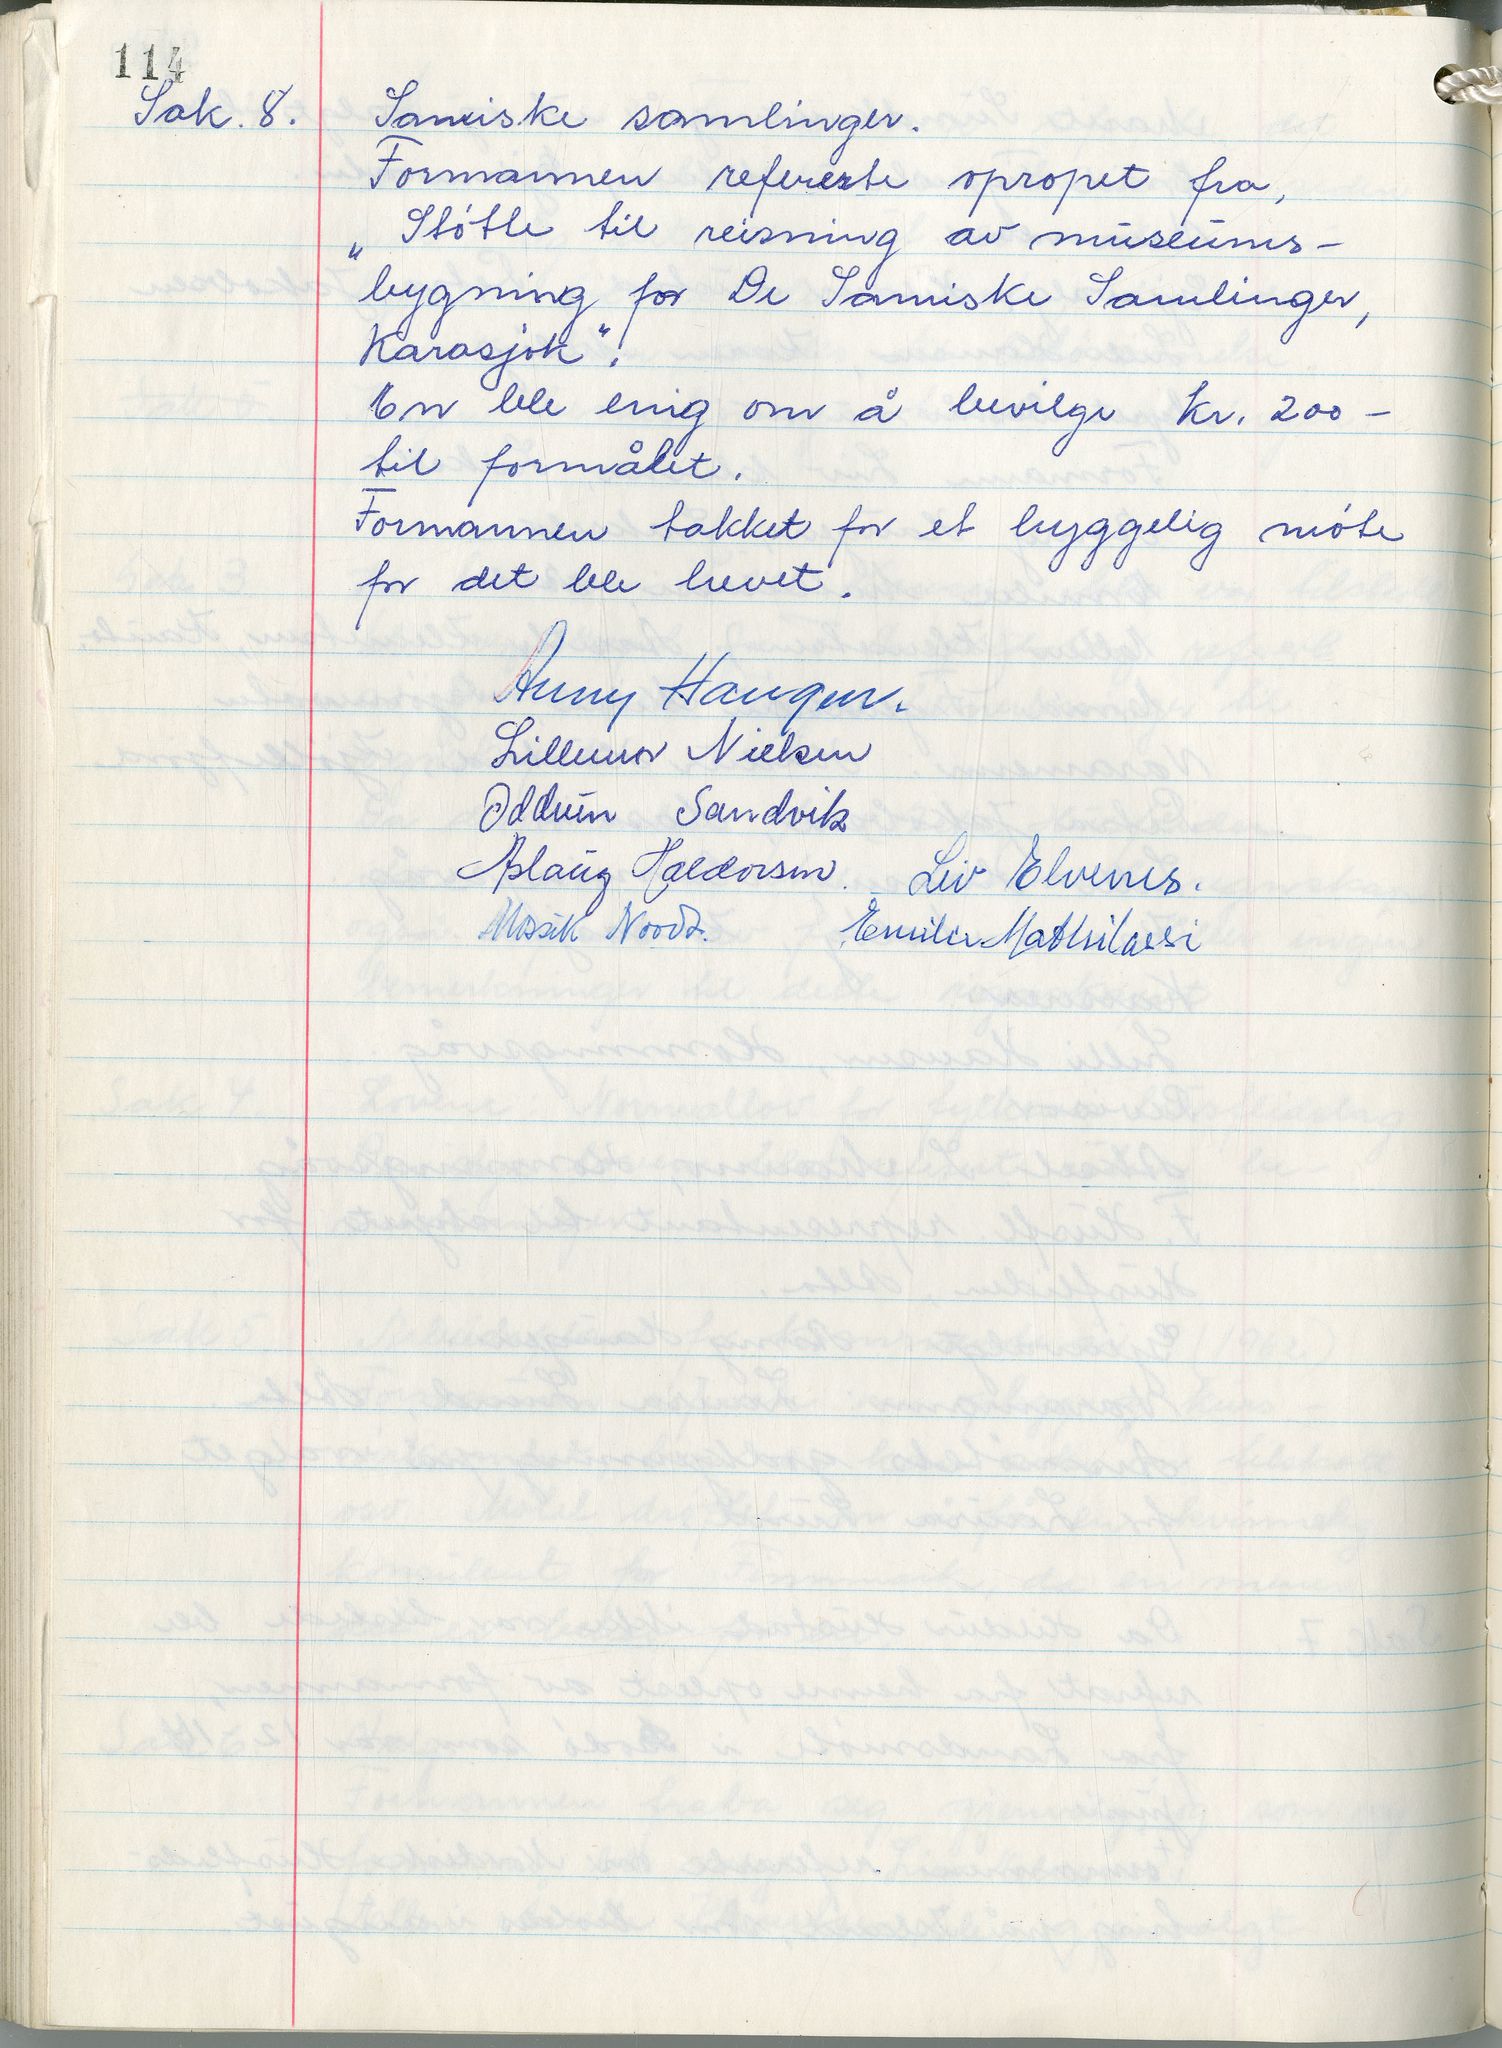 114
Sak. 8. Samiske samlinger.
Formannen refererte opropet fra,
„Støtte til reisning av museums-
bygning for De Samiske Samlinger,
Karasjok".
En ble enig om å bevilge kr. 200 -
til formålet.
Formannen takket for et hyggelig møte
før det ble hevet.
Anny Haugen.
Lillemor Nielsen
Oddrun Sandvik
Aslaug Haldorsen. Liv Elvenes.
Emilie Mathilassi